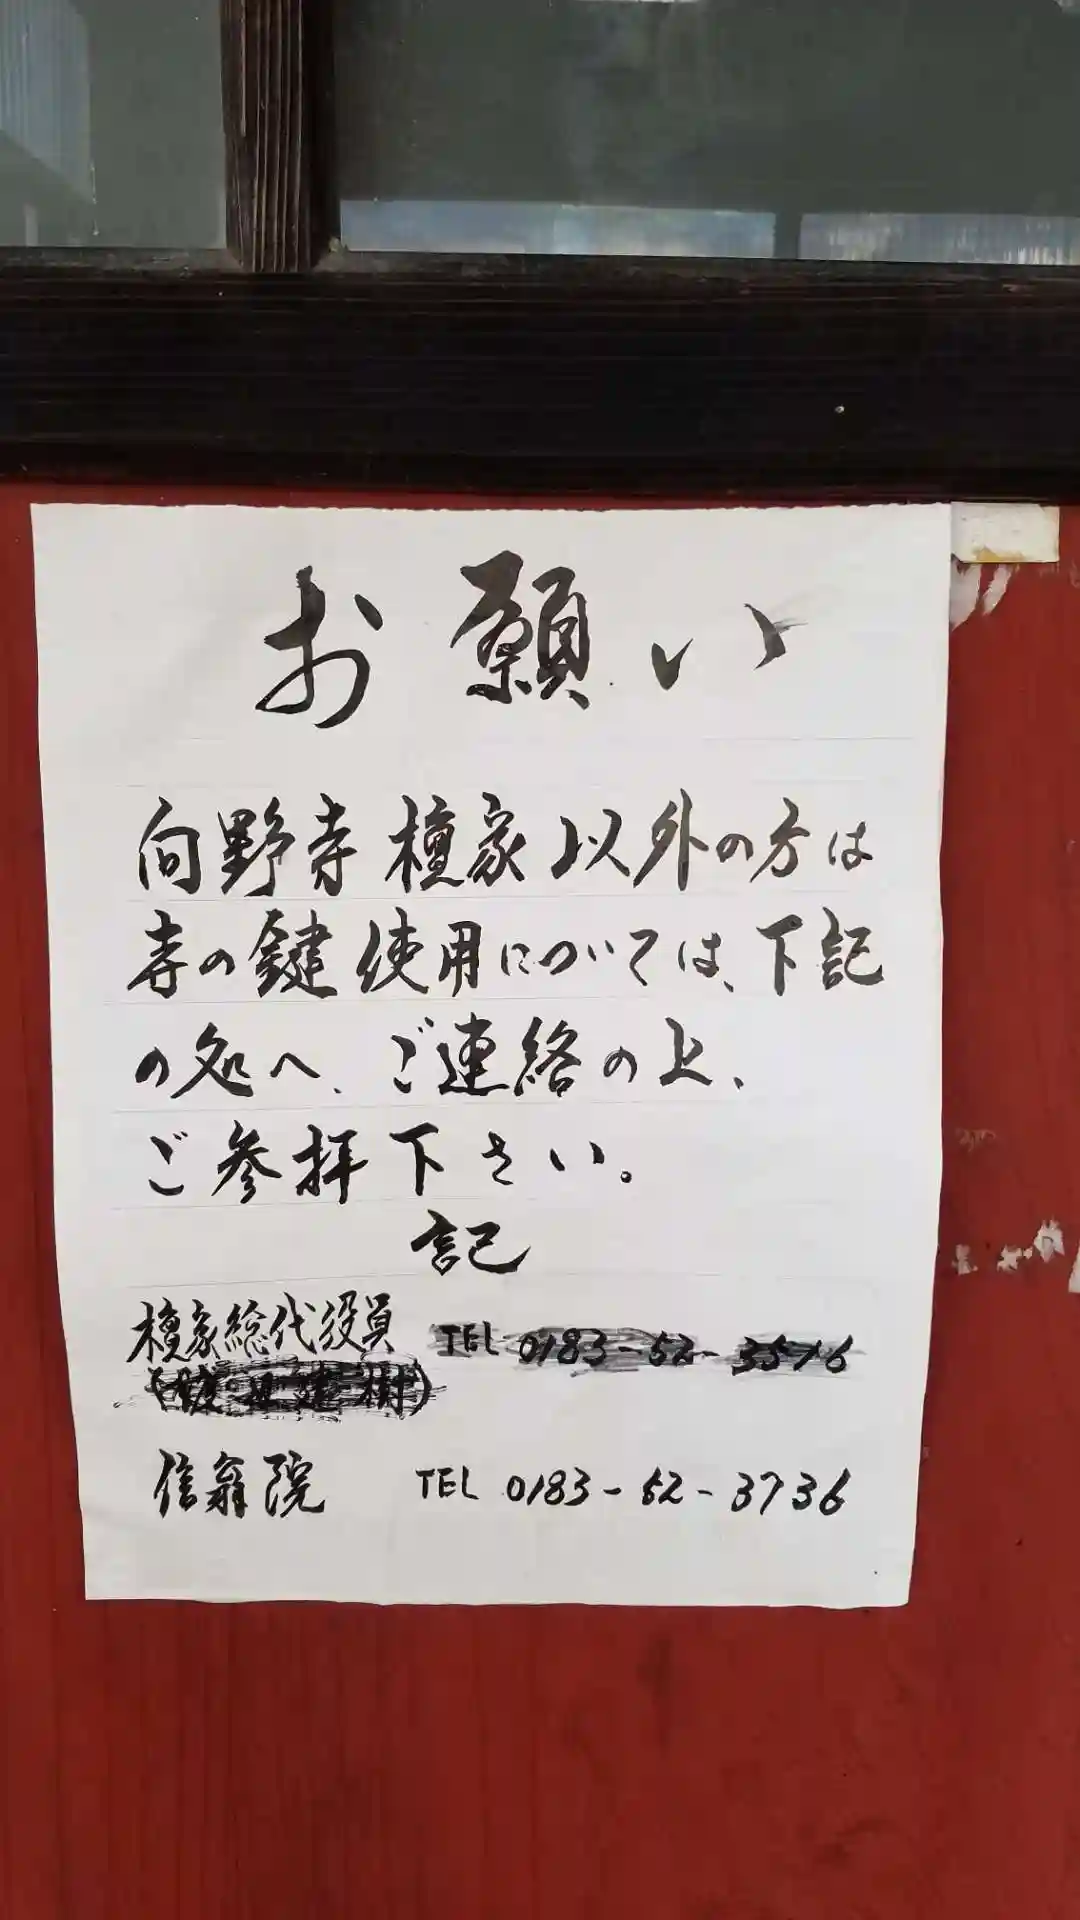 お願い
向野寺檀家以外の方は
寺の鍵使用については、下記
の処へ、ご連絡の上、
ご参拝下さい。
記
檀家総代役員 TEL
信翁院 TEL 0183-52-3736